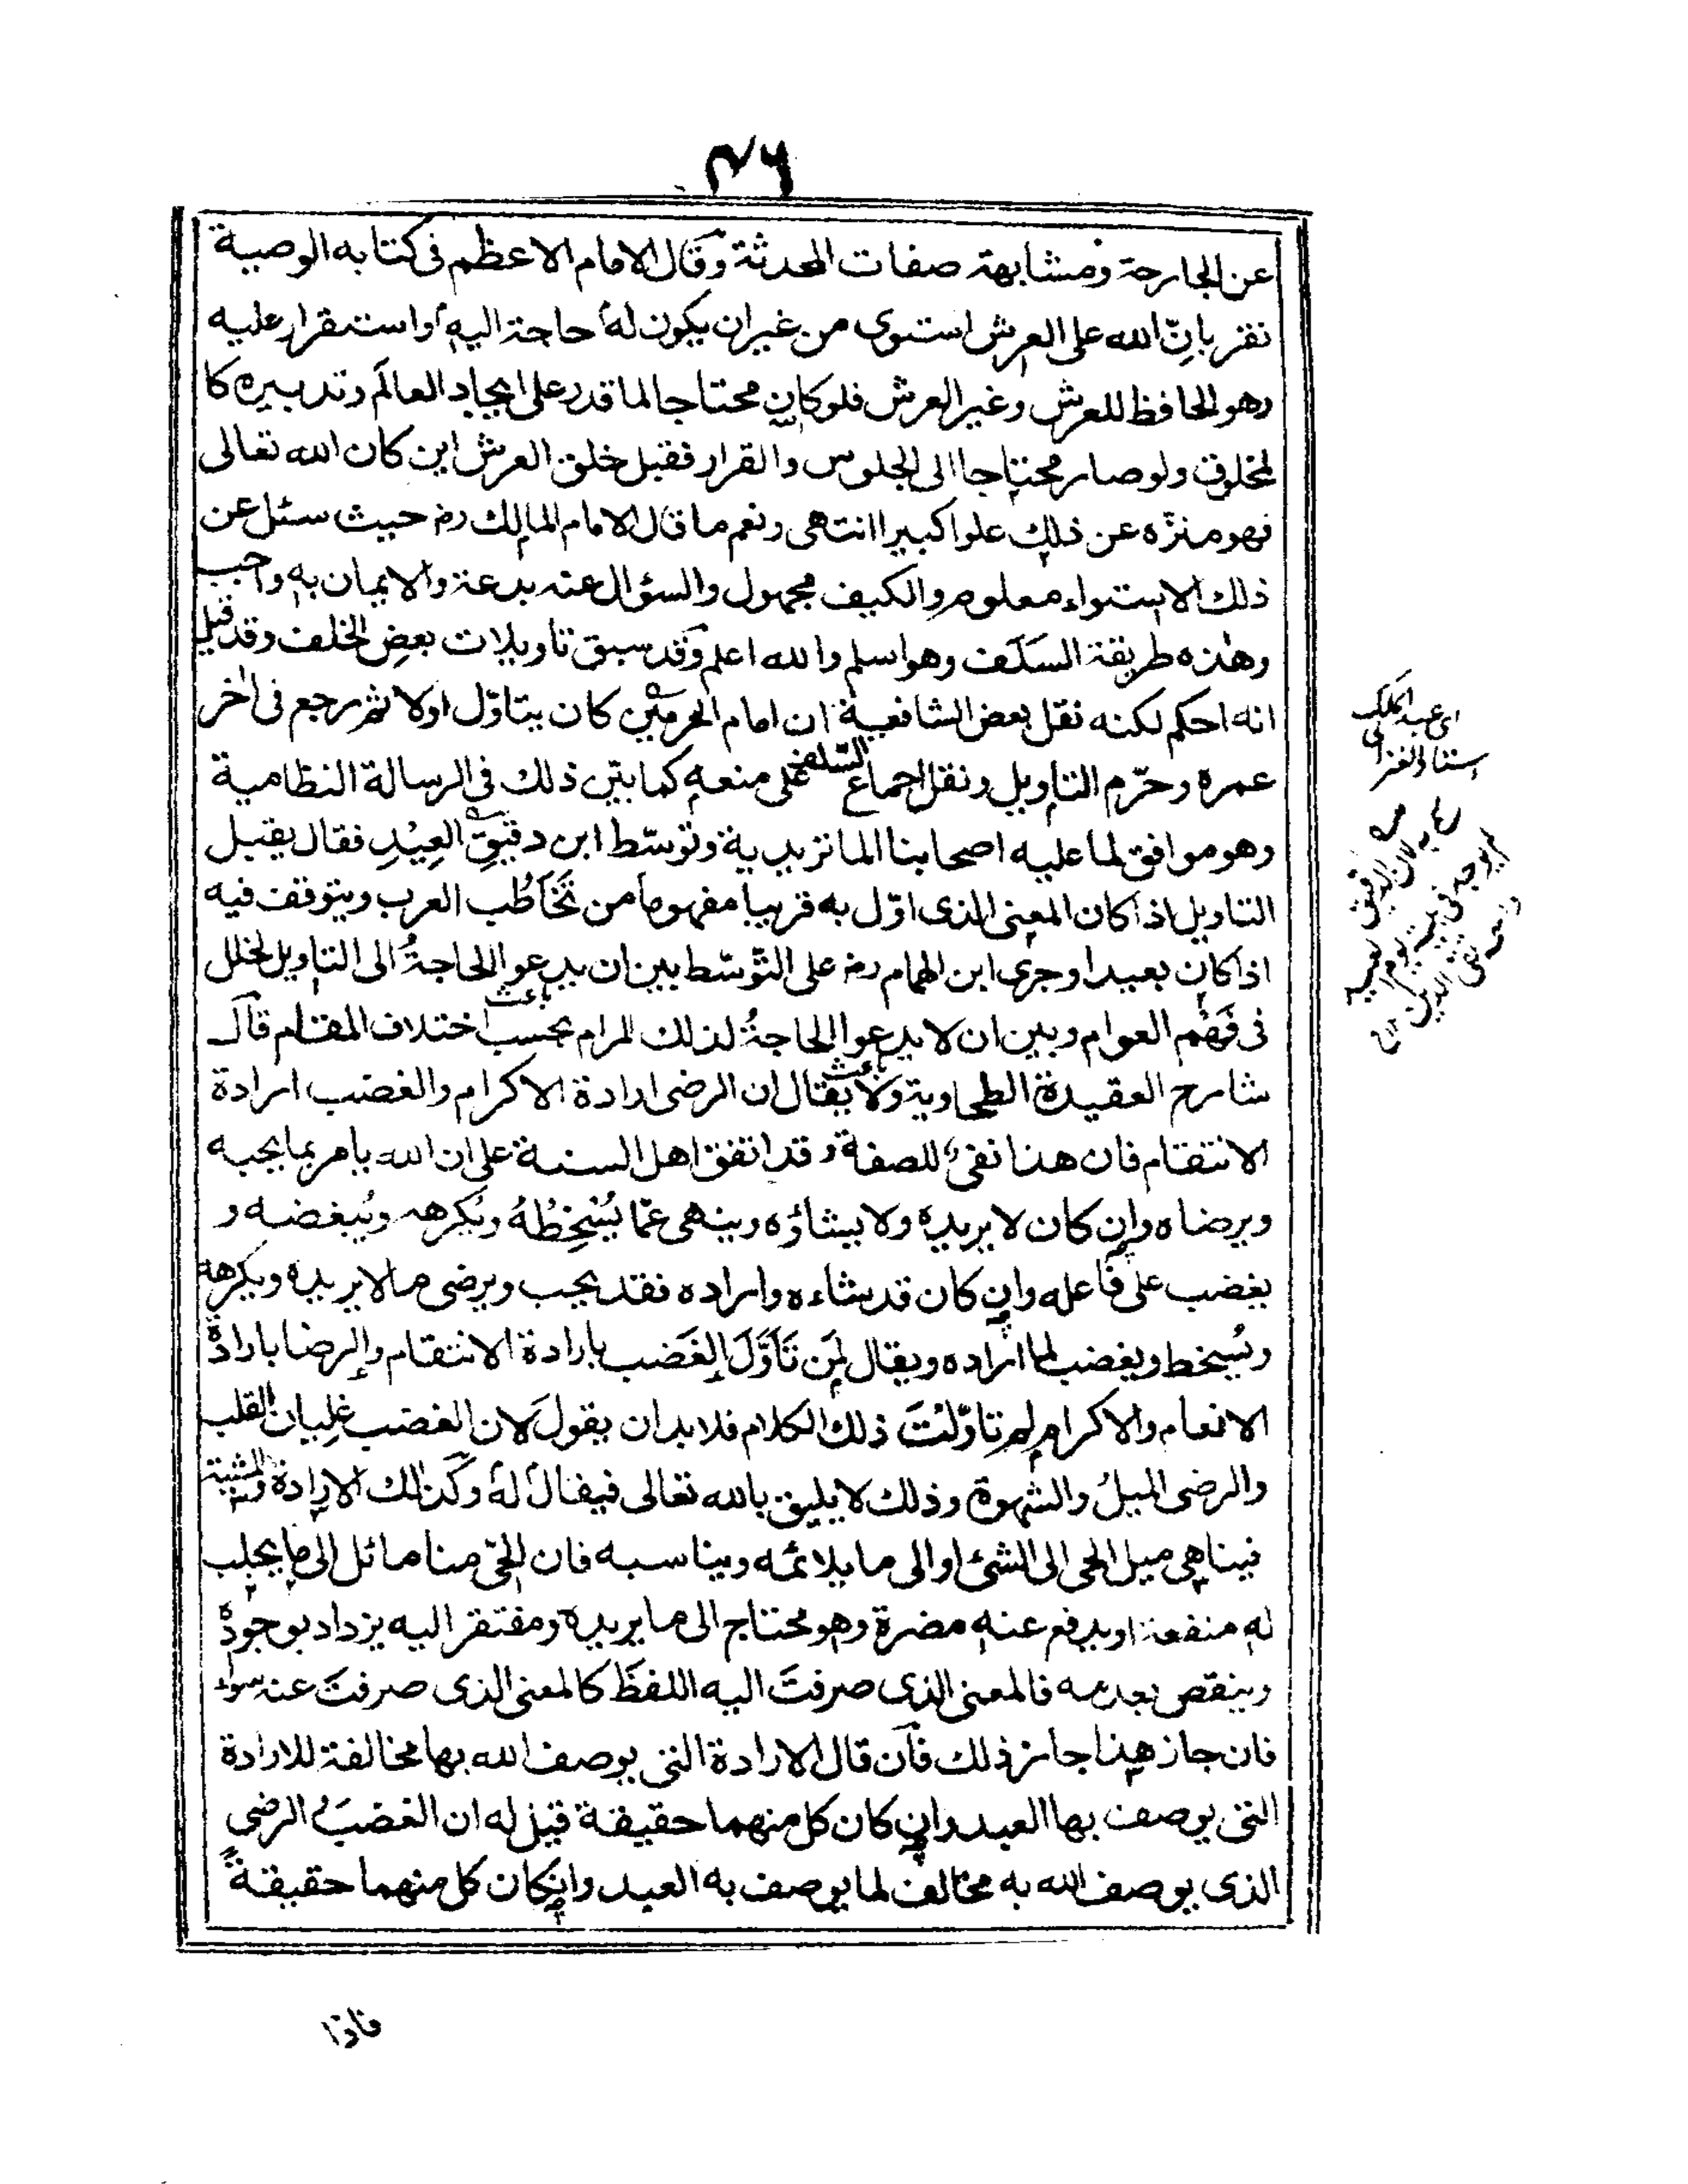 ٤٦
عن الجارحة ومشابهة صفات المحدثة وقال الامام الاعظم فى كتابه الوصية
نقر بانّ الله على العرش استوى من غير ان يكون له حاجة اليه واستقرار عليه
وهو الحافظ للعرش وغير العرش فلو كان محتاجا لما قدر على ايجاد العالم وتدبيره كا
لمخلوق ولو صار محتاجا الى الجلوس والقرار فقبل خلق العرش اين كان الله تعالى
فهو منزّه عن ذلك علوا كبيرا انتهى ونعم ما قال الامام المالك رح حيث سئل عن
ذلك الاستواء معلوم والكيف مجهول والسؤال عنه بدعة والايمان به واجب
وهذه طريقة السلف وهو اسلم والله اعلم وقد سبق تاويلات بعض الخلف وقد قيل
انه احكم لكنه نقل بعض الشافعية ان امام الحرمين كان يتاوّل اولا ثم رجع فى اخر
عمره وحرّم التاويل ونقل اجماع السلف على منعه كما بيّن ذلك فى الرسالة النظامية
وهو موافق لما عليه اصحابنا الماتريدية وتوسّط ابن دقيق العيد فقال يقبل
التاويل اذا كان المعنى الذى اوّل به قريبا مفهوما من تخاطُب العرب ويتوقف فيه
اذا كان بعيدا وجرى ابن الهمام رح على التوسّط بين ان يدعو الحاجةُ الى التاويل لخلل
فى فَهْم العوام وبين ان لا يدعو الحاجةُ لذلك المرام بحسب اختلاف المقام قال
شارح العقيدة الطحاوية ولا يقال ان الرضى ارادة الاكرام والغضب ارادة
الانتقام فان هذا نفى للصفة وقد اتفق اهل السنة على ان الله يامر بما يحبه
ويرضاه وان كان لا يريده ولا يشاؤه وينهى عمّا يُسْخِطُهُ ويُكرهه ويُبغضه و
يغضب على فاعله وان كان قد شاءه واراده فقد يحب ويرضى ما لا يريده ويكرهه
ويُسخط ويغضب لما اراده ويقال لِمَن تَأَوَّلَ الغَضب بارادة الانتقام والرضا بارادة
الانعام والاكرام لِم تاوّلتَ ذلك الكلام فلا بد ان يقول لان الغضب غليان القلب
والرضى الميلُ والشهوة وذلك لا يليق بالله تعالى فيقال له وكذلك الارادة والمشية
فينا هى ميل الحى الى الشئ او الى ما يلائمه ويناسبه فان الحىّ منا مائل الى ما يجلب
له منفعة او يدفع عنه مضرة وهو محتاج الى ما يريده ومفتقر اليه يزداد بوجوده
وينقص بعدمه فالمعنى الذى صرفتَ اليه اللفظَ كالمعنى الذى صرفتَ عنه سواء
فان جاز هذا جاز ذلك فان قال الارادة التى يوصف الله بها مخالفة للارادة
التى يوصف بها العبد وان كان كل منهما حقيقة قيل له ان الغضب والرضى
الذى يوصف الله به مخالف لما يوصف به العبد وان كان كل منهما حقيقة
اى عبد الملك
استاذ الغزالى
فاذا